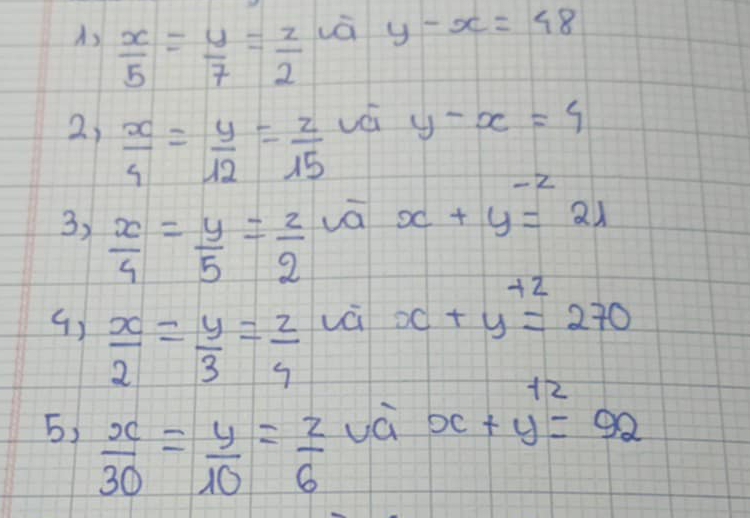 1, x/5 = y/7 = z/2 và y - x = 48
2, x/4 = y/12 = z/15 và y - x = 4
3, x/4 = y/5 = z/2 và x + y - z = 21
4, x/2 = y/3 = z/4 và x + y + z = 270
5, x/30 = y/10 = z/6 và x + y + z = 92